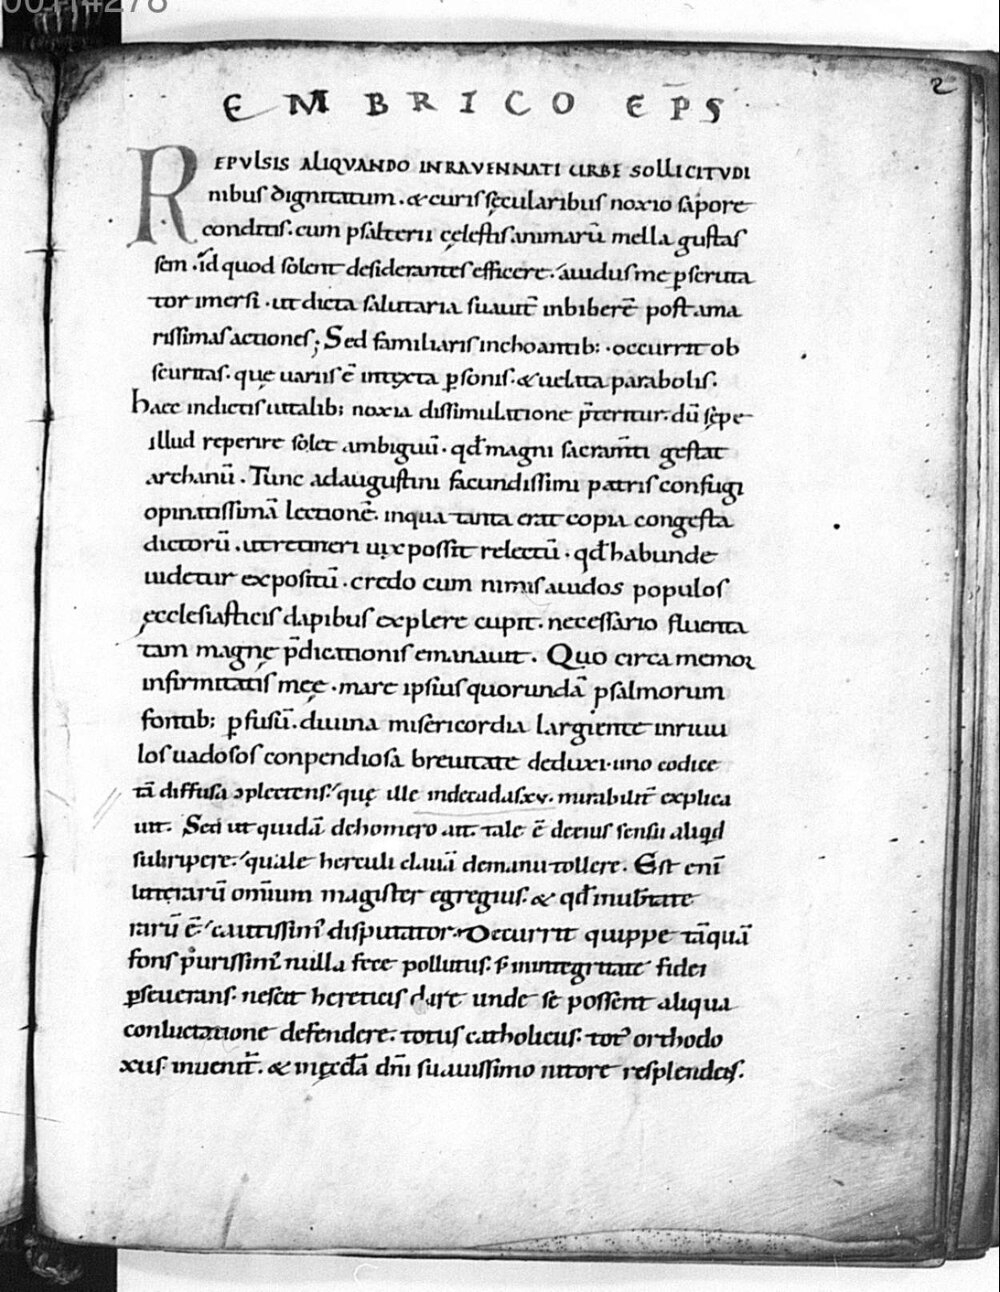 2
EMBRICO EP̄S
REPVLSIS ALIQVANDO INRAVENNATI URBE SOLLICITVDI
nibus dignitatum . & curis sęcularibus noxio sapore
conditis . cum psalterii cęlestis . animarū mella gustas
sem . id quod solent desiderantes efficere . avidus me pscruta
tor imersi . ut dicta salutaria suavit̄ inbiberē post ama
rissimas actiones ; Sed familiaris inchoantib; . occurrit ob
scuritas . quę variis ē intęxta psonis . & velata parabolis .
haec indictis vitalib; noxia dissimulatione p̄teritur . dū sępe
illud reperire solet ambiguū . qđ magni sacram̄ti gestat
archanū . Tunc ad augustini facundissimi patris confugi
opinatissimā lectionē . inqua tanta erat copia congesta
dictorū . ut retineri vix possit relectū . qđ habunde
videtur expositū . credo cum nimis avidos populos
ęcclesiasticis dapibus explere cupit . necessario fluenta
tam magnę p̄dicationis emanavit . Quo circa memor
infirmitatis meę . mare ipsius quorundā psalmorum
fontib; pfusū . divina misericordia largiente inrivu
los vadosos conpendiosa brevitate deduxi . uno codice
tā diffusa ɔplectens . quę ille indecadas xv . mirabilit̄ explica
vit . Sed ut quidā dehomero ait . tale ē decius sensu aliqđ
subripere . quale herculi clavā demanu tollere . Est enī
litterarū omnium magister egregius . & qđ inubtate
rarū ē cautissim' disputator . Decurrit quippe tāquā
fons purissim' nulla fece pollutus . s; inintegritate fidei
pseverans . nescit hereticis dare unde se possent aliqua
conluctatione defendere . totus catholicus . tot' orthodo
xus invenit̄ . & inęcclā dn̄i suavissimo nitore resplendens .